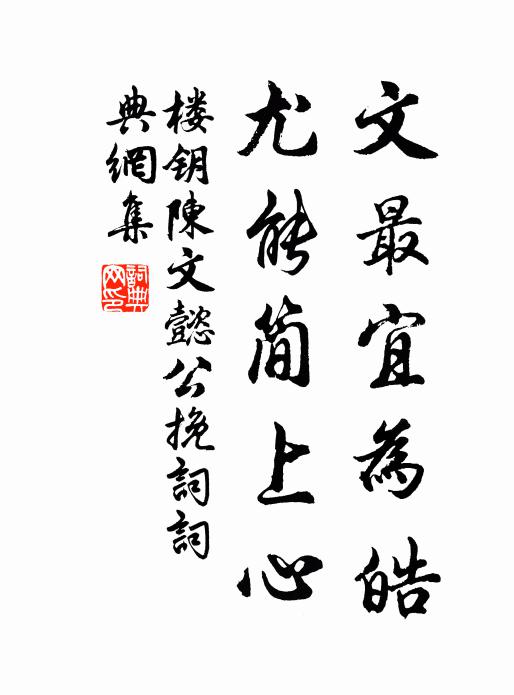 文最宜為皓
尤能簡上心
楼钥陳文懿公挽詞詞
典網集
詞典
网印